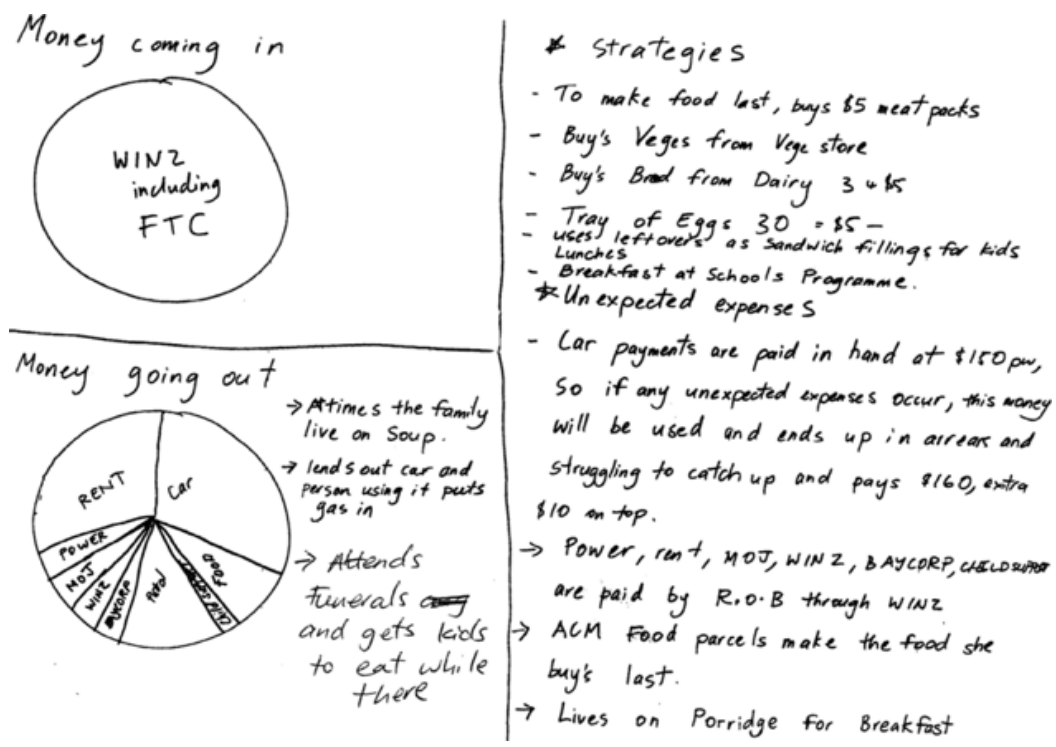 Money coming in
WINZ
including
FTC
Money going out
RENT
Car
POWER
MOJ
WINZ
BAYCORP
Petrol
CHILD SUPPORT
FOOD
→ At times the family
live on Soup.
→ lends out car and
person using it puts
gas in
→ Attends
Funerals
and gets kids
to eat while
there
* Strategies
- To make food last, buys $5 meat packs
- Buy's Veges from Vege store
- Buy's Bread from Dairy 3 4 $5
- Tray of Eggs 30 = $5 -
- uses leftovers as Sandwich fillings for kids
Lunches
- Breakfast at Schools Programme.
* Unexpected expenses
- Car payments are paid in hand at $150 pw,
So if any unexpected expenses occur, this money
will be used and ends up in arrears and
struggling to catch up and pays $160, extra
$10 on top.
→ Power, rent, MOJ, WINZ, BAYCORP, CHILD SUPPORT
are paid by R.O.B through WINZ
→ ACM Food parcels make the food she
buy's last.
→ Lives on Porridge for Breakfast